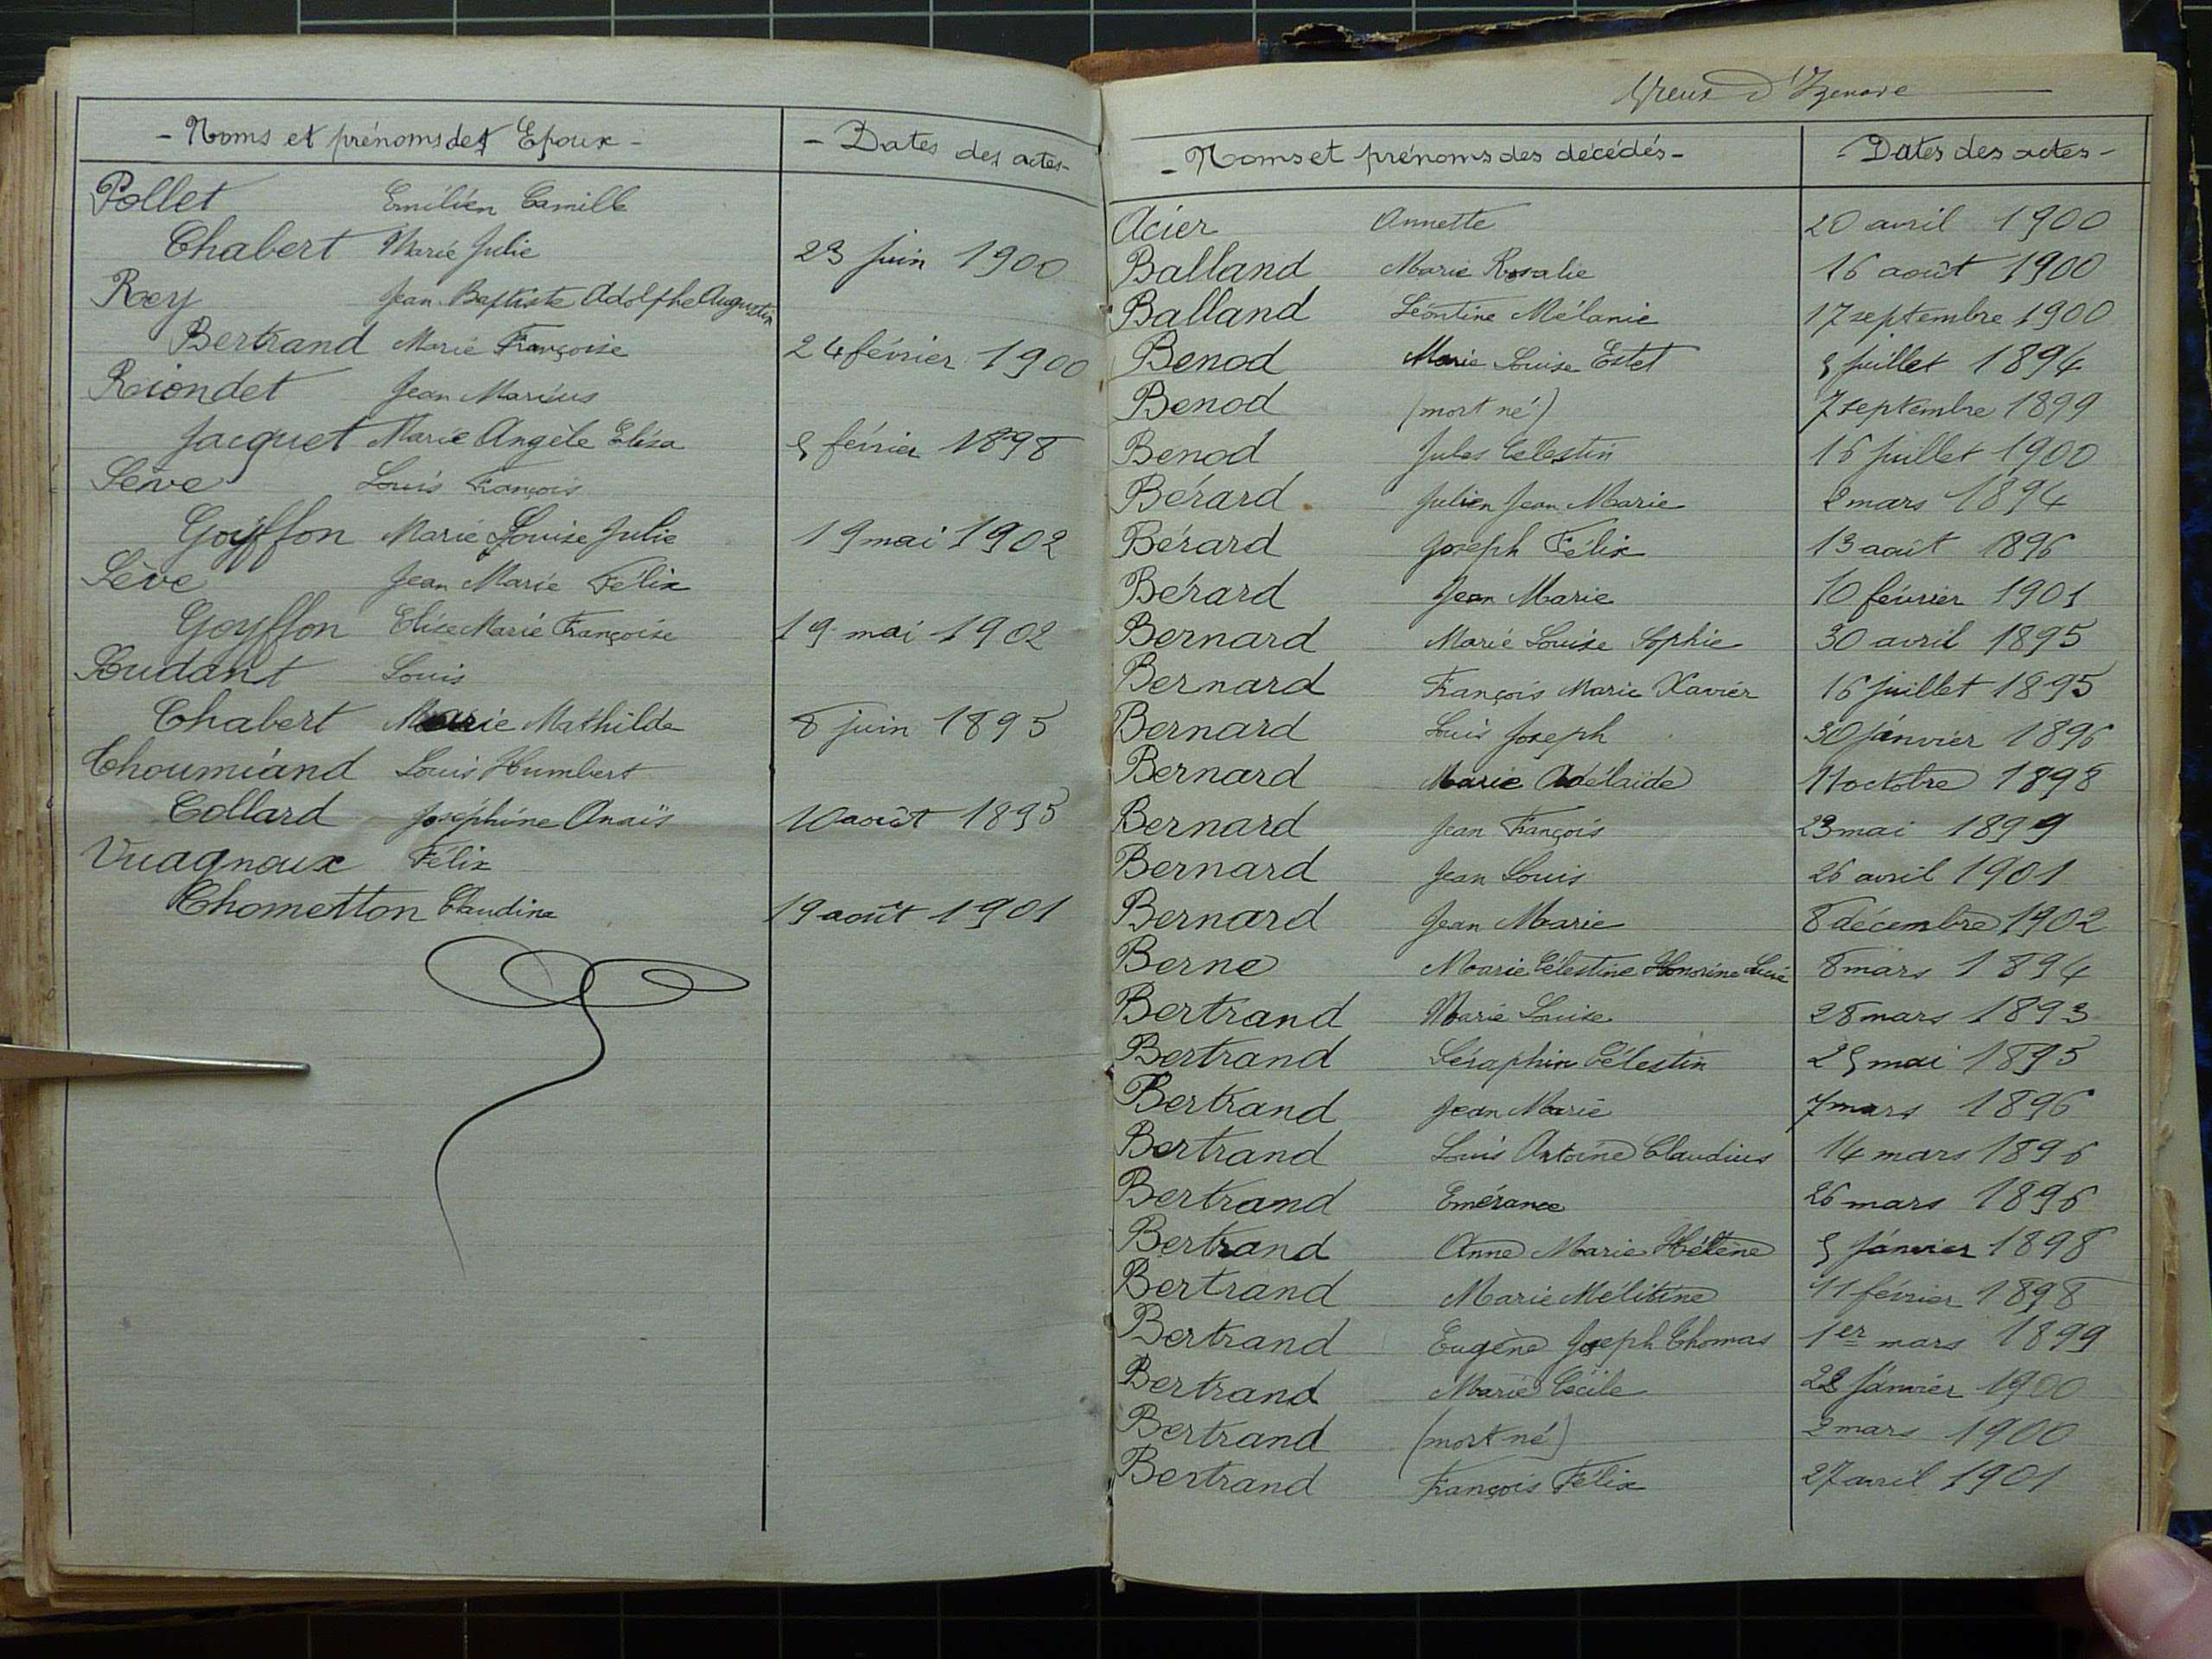 - Noms et prénoms des Epoux - - Dates des actes -
Pollet Emilien Camille
Chabert Marie Julie 23 juin 1900
Rey Jean-Baptiste Adolphe Augustin
Bertrand Marie Françoise 24 février 1900
Riondet Jean Marius
Jacquet Marie Angèle Eliza 5 février 1898
Sève Louis François
Goyffon Marie Louise Julie 19 mai 1902
Sève Jean Marie Félix
Goyffon Elise Marie Françoise 19 mai 1902
Sudant Louis
Chabert Marie Mathilde 8 juin 1895
Thoumiand Louis Humbert
Collard Joséphine Anaïs 10 août 1895
Vuagnoux Félix
Chometton Claudine 19 août 1901
d'Izenave
- Noms et prénoms des décédés - - Dates des actes -
Acier Annette 20 avril 1900
Balland Marie Rosalie 16 août 1900
Balland Léontine Mélanie 17 septembre 1900
Benod Marie Louise Estel 5 juillet 1894
Benod (mort né) 7 septembre 1899
Benod Jules Célestin 16 juillet 1900
Bérard Julien Jean Marie 2 mars 1894
Bérard Joseph Félix 13 août 1896
Bérard Jean Marie 10 février 1901
Bernard Marie Louise Sophie 30 avril 1895
Bernard François Marie Xavier 16 juillet 1895
Bernard Louis Joseph 30 janvier 1896
Bernard Marie Adélaïde 11 octobre 1898
Bernard Jean François 23 mai 1899
Bernard Jean Louis 26 avril 1901
Bernard Jean Marie 8 décembre 1902
Berne Marie Célestine Honorine Lucie 8 mars 1894
Bertrand Marie Louise 28 mars 1893
Bertrand Séraphin Célestin 25 mai 1895
Bertrand Jean Marie 7 mars 1896
Bertrand Louis Antoine Claudius 14 mars 1896
Bertrand Emérance 26 mars 1896
Bertrand Anne Marie Hélène 5 janvier 1898
Bertrand Marie Mélitine 11 février 1898
Bertrand Eugène Joseph Thomas 1er mars 1899
Bertrand Marie Cécile 28 janvier 1900
Bertrand (mort né) 2 mars 1900
Bertrand François Félix 27 avril 1901